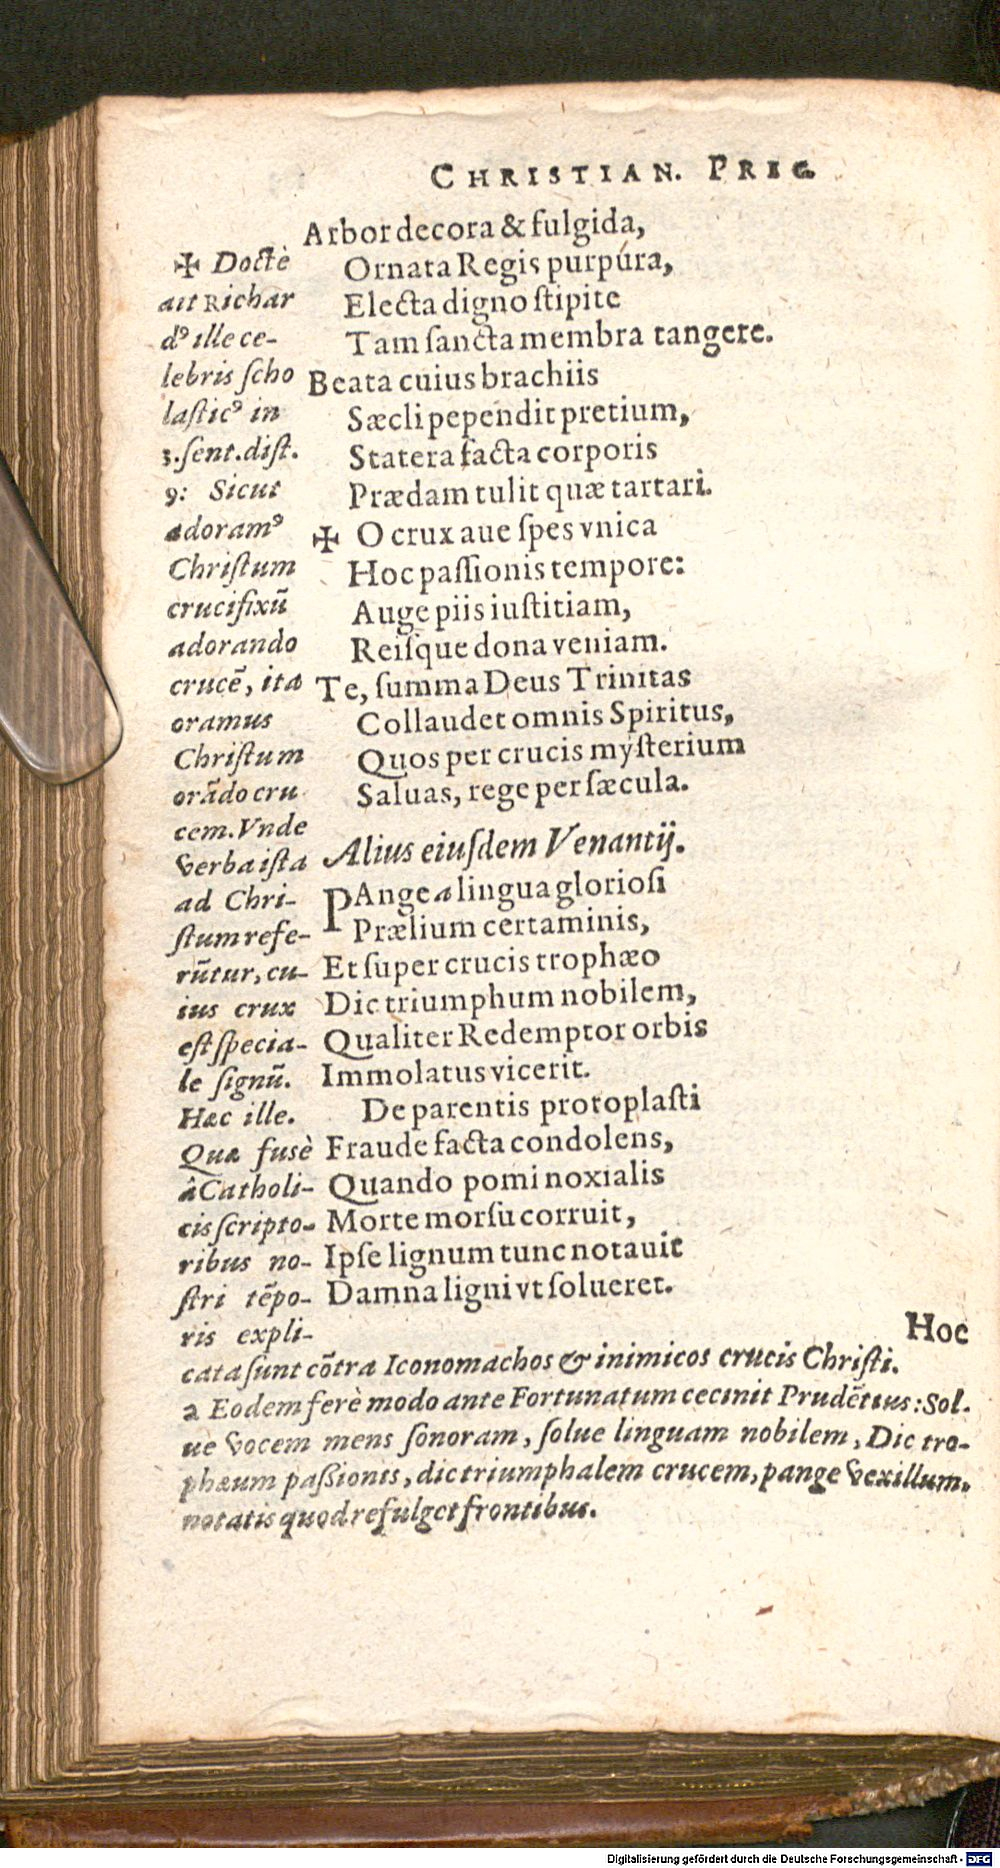 CHRISTIAN. PREC.
Arbor decora & fulgida,
Ornata Regis purpura,
Electa digno ſtipite
Tam ſancta membra tangere.
Beata cuius brachiis
Sæcli pependit pretium,
Statera facta corporis
Prædam tulit quæ tartari.
✠ O crux aue ſpes vnica
Hoc paſſionis tempore:
Auge piis iuſtitiam,
Reiſque dona veniam.
Te, ſumma Deus Trinitas
Collaudet omnis Spiritus,
Quos per crucis myſterium
Saluas, rege per ſæcula.
Alius eiuſdem Venantij.
PAnge a lingua glorioſi
Prælium certaminis,
Et ſuper crucis trophæo
Dic triumphum nobilem,
Qualiter Redemptor orbis
Immolatus vicerit.
De parentis protoplaſti
Fraude facta condolens,
Quando pomi noxialis
Morte morſu corruit,
Ipſe lignum tunc notauit
Damna ligni vt ſolueret.
Hoc
✠ Doctè
ait Richar
dꝰ ille ce-
lebris ſcho
laſticꝰ in
3. ſent. diſt.
9: Sicut
adoramꝰ
Chriſtum
crucifixū
adorando
crucē, ita
oramus
Chriſtum
orādo cru
cem. Vnde
verba iſta
ad Chri-
ſtum refe-
rūtur, cu-
ius crux
eſt ſpecia-
le ſignū.
Hæc ille.
Quæ fusè
à Catholi-
cis ſcripto-
ribus no-
ſtri tēpo-
ris expli-
cata ſunt cōtra Iconomachos & inimicos crucis Chriſti.
a Eodem ferè modo ante Fortunatum cecinit Prudētius: Sol-
ue vocem mens ſonoram, ſolue linguam nobilem, Dic tro-
phæum paßionis, dic triumphalem crucem, pange vexillum,
notatis quod refulget frontibus.
Digitalisierung gefördert durch die Deutsche Forschungsgemeinschaft - DFG